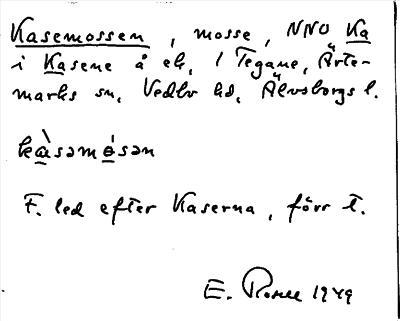 Kasemossen, mosse, NNO Ka
i Kasene å ek, 1 Tegane, Ärte-
marks sn, Vedbo hd, Älvsborgs l.
kàsəmósən
F. led efter Kaserna, förr t.
E. 1949